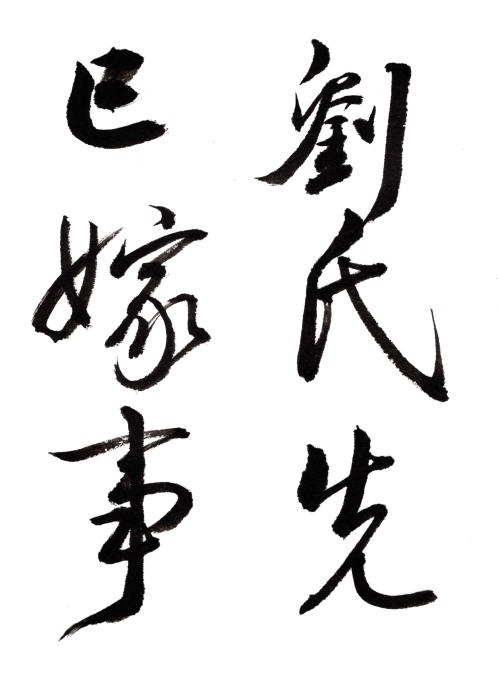 劉氏先
已嫁事